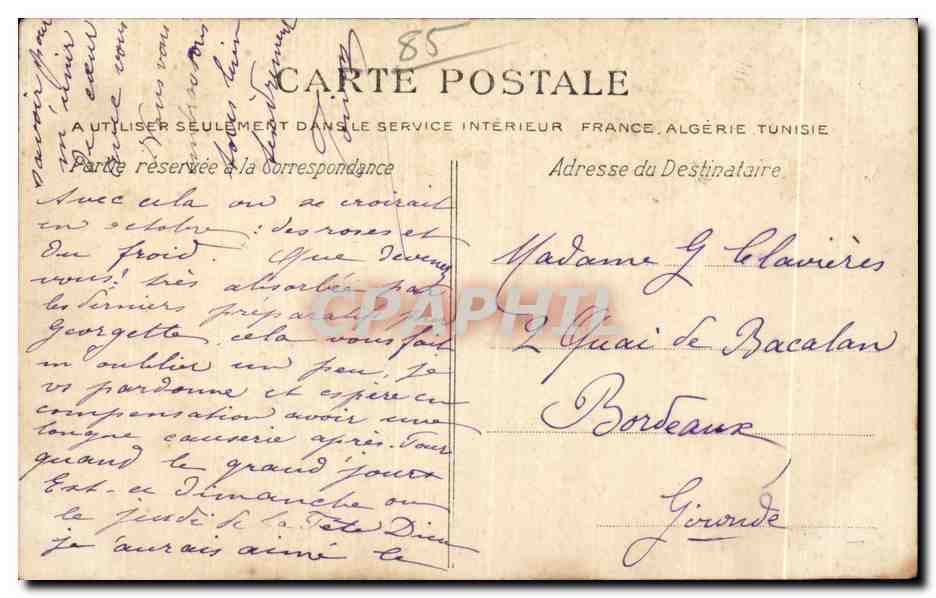 85
CARTE POSTALE
A UTILISER SEULEMENT DANS LE SERVICE INTÉRIEUR FRANCE, ALGÉRIE, TUNISIE
Partie réservée à la Correspondance
Adresse du Destinataire
Avec cela on se croirait
en octobre : des roses et
du froid. Que devenez
vous! très absorbée par
les derniers préparatifs de
Georgette, cela vous fait
m'oublier un peu, je
vs pardonne et espère en
compensation avoir une
longue causerie après. Pour
quand le grand jour?
Est-ce dimanche ou
le jeudi de la Fête Dieu
je aurais aimé le
savoir pour
m'unir
de cœur
avec vous
Nous vous
embrassons
tous bien
tendrement
Madame G Clavières
2 Quai de Bacalan
Bordeaux
Gironde
CPAPHIL